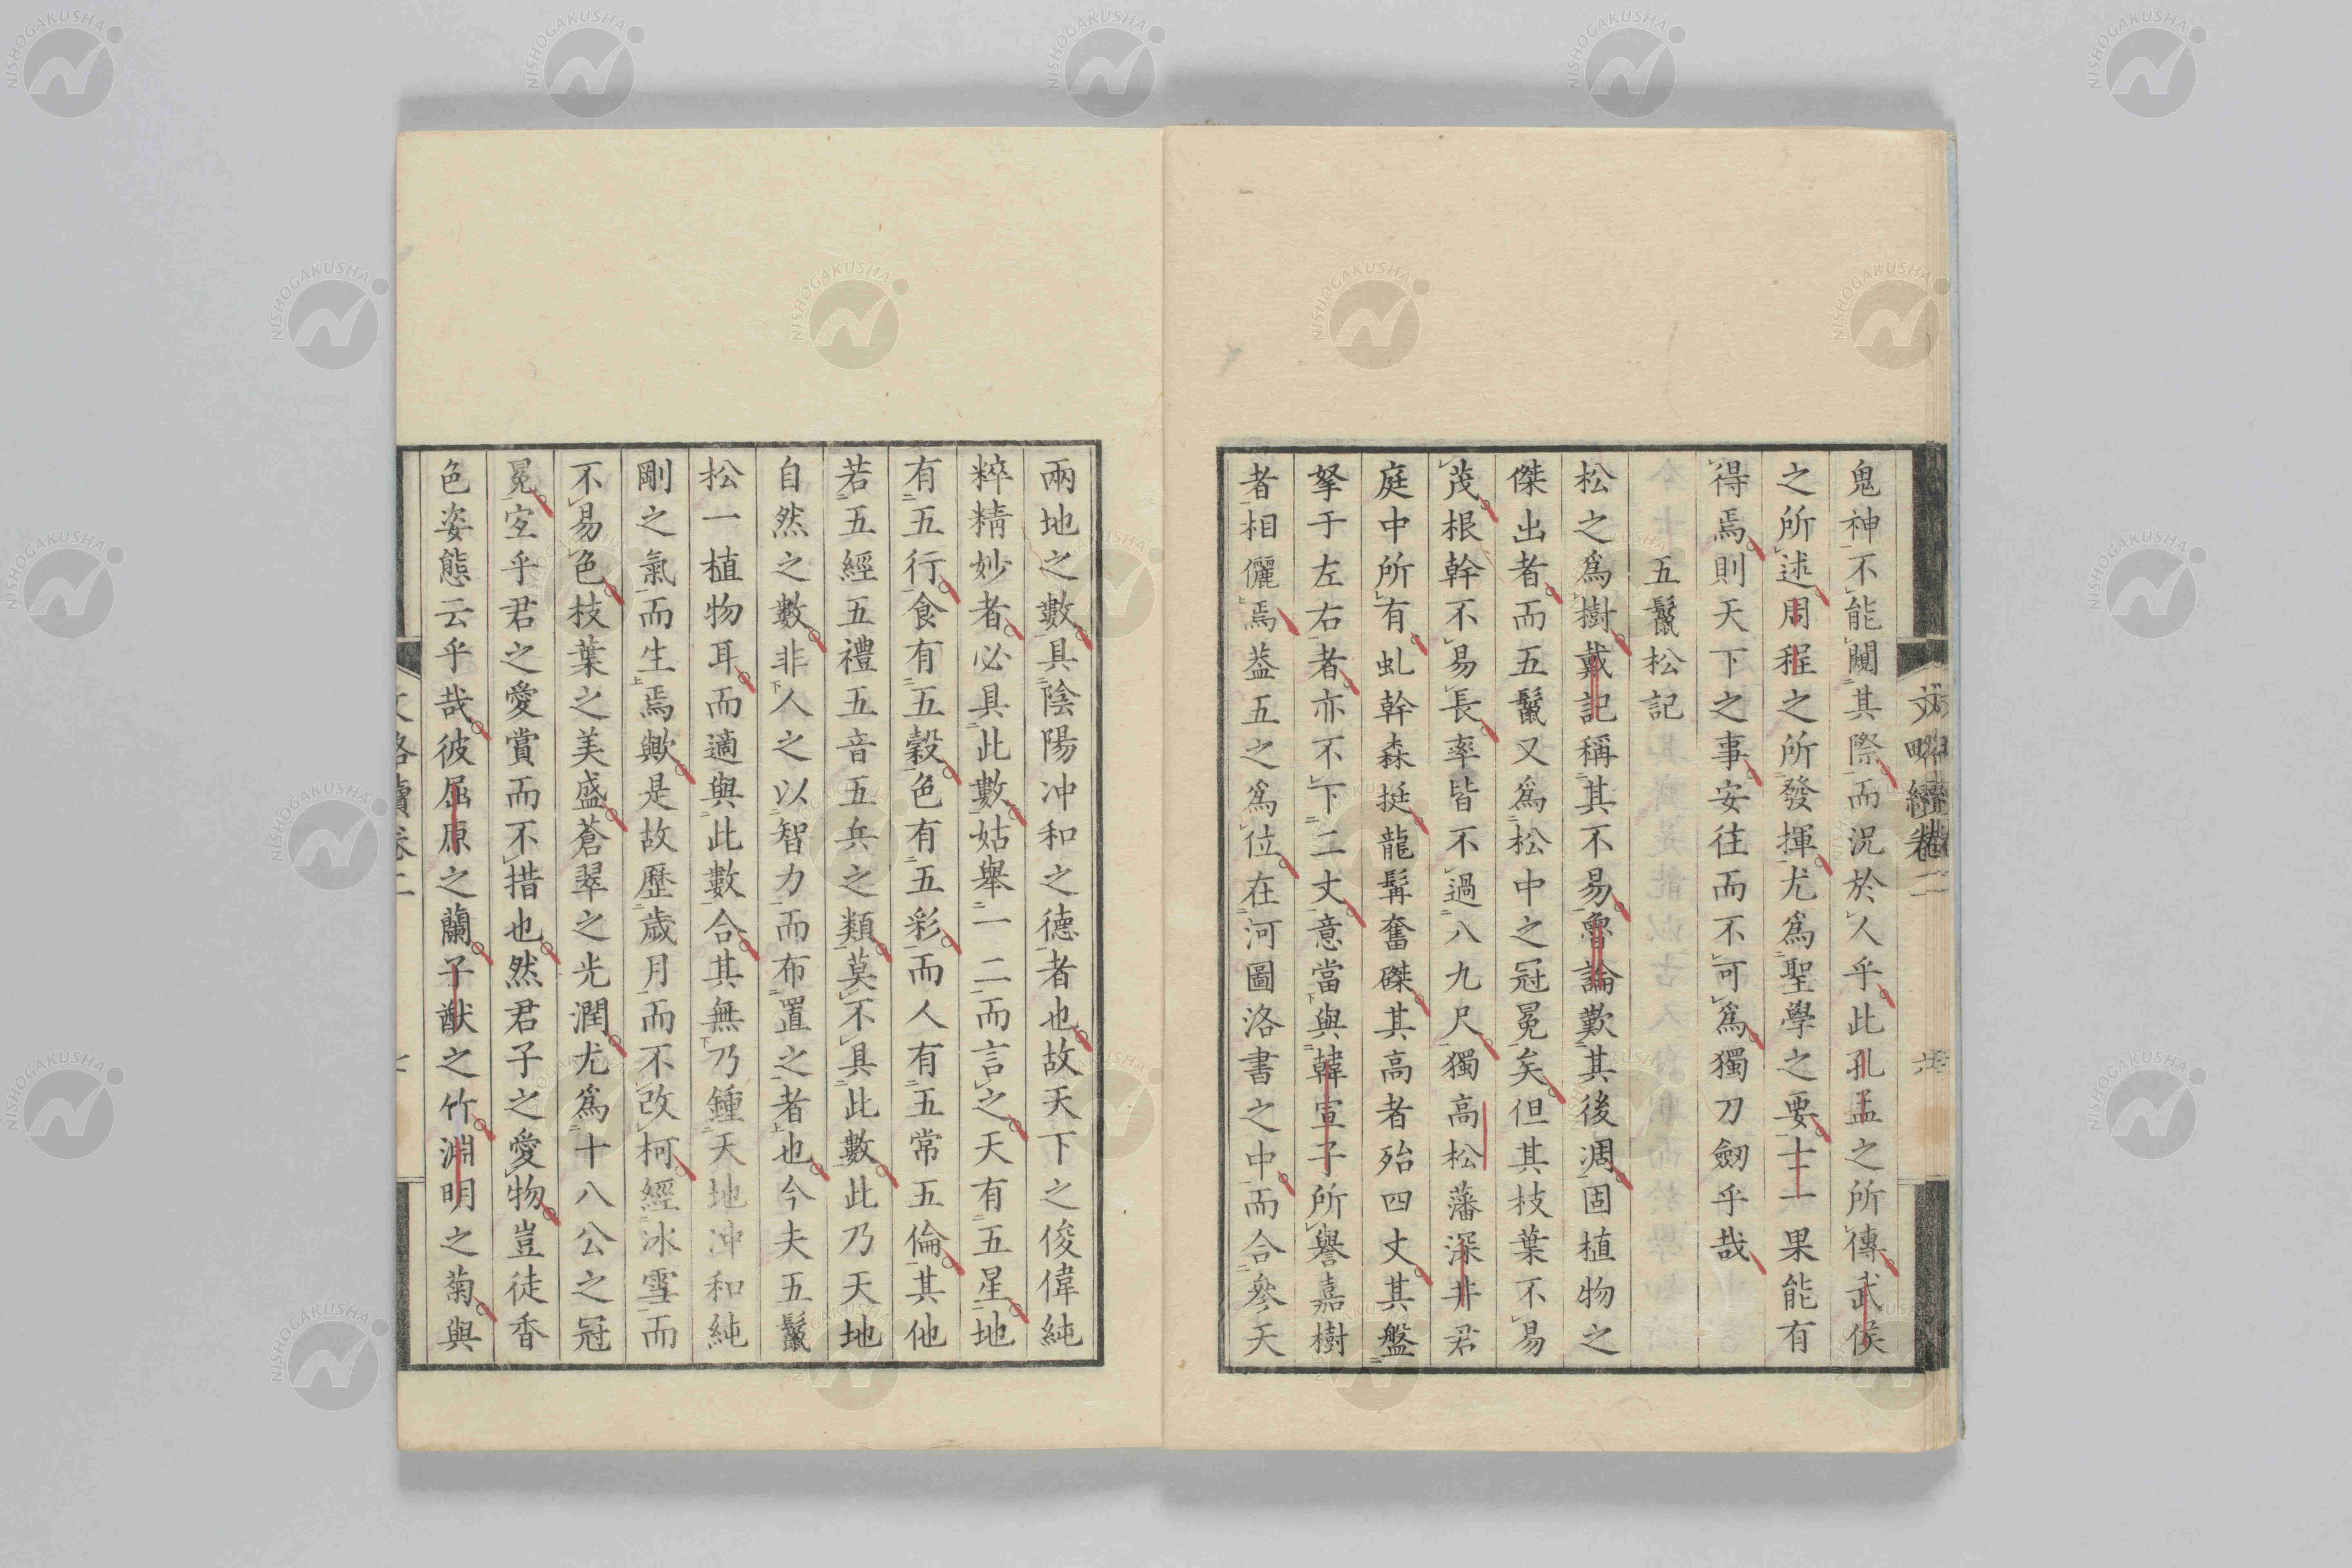 鬼神不能闚其際而況於人乎此孔孟之所傳武侯
之所述周程之所發揮尤爲聖學之要十一果能有
得焉則天下之事安往而不可爲獨刀劒乎哉
五鬣松記
松之爲樹戴記稱其不易魯論歎其後凋固植物之
傑出者而五鬣又爲松中之冠冕矣但其枝葉不易
茂根幹不易長率皆不過八九尺獨高松藩深井君
庭中所有虬幹森挺龍髯奮磔其高者殆四丈其盤
拏于左右者亦不下二丈意當與韓宣子所譽嘉樹
者相儷焉葢五之爲位在河圖洛書之中而合參天
兩地之數具陰陽冲和之德者也故天下之俊偉純
粹精妙者必具此數姑舉一二而言之天有五星地
有五行食有五穀色有五彩而人有五常五倫其他
若五經五禮五音五兵之類莫不具此數此乃天地
自然之數非人之以智力而布置之者也今夫五鬣
松一植物耳而適與此數合其無乃鍾天地冲和純
剛之氣而生焉歟是故歷歲月而不改柯經冰雪而
不易色枝葉之美盛蒼翠之光潤尤爲十八公之冠
冕宐乎君之愛賞而不措也然君子之愛物豈徒香
色姿態云乎哉彼屈原之蘭子猷之竹淵明之菊與
文略續卷二
六
NISHOGAKUSHA